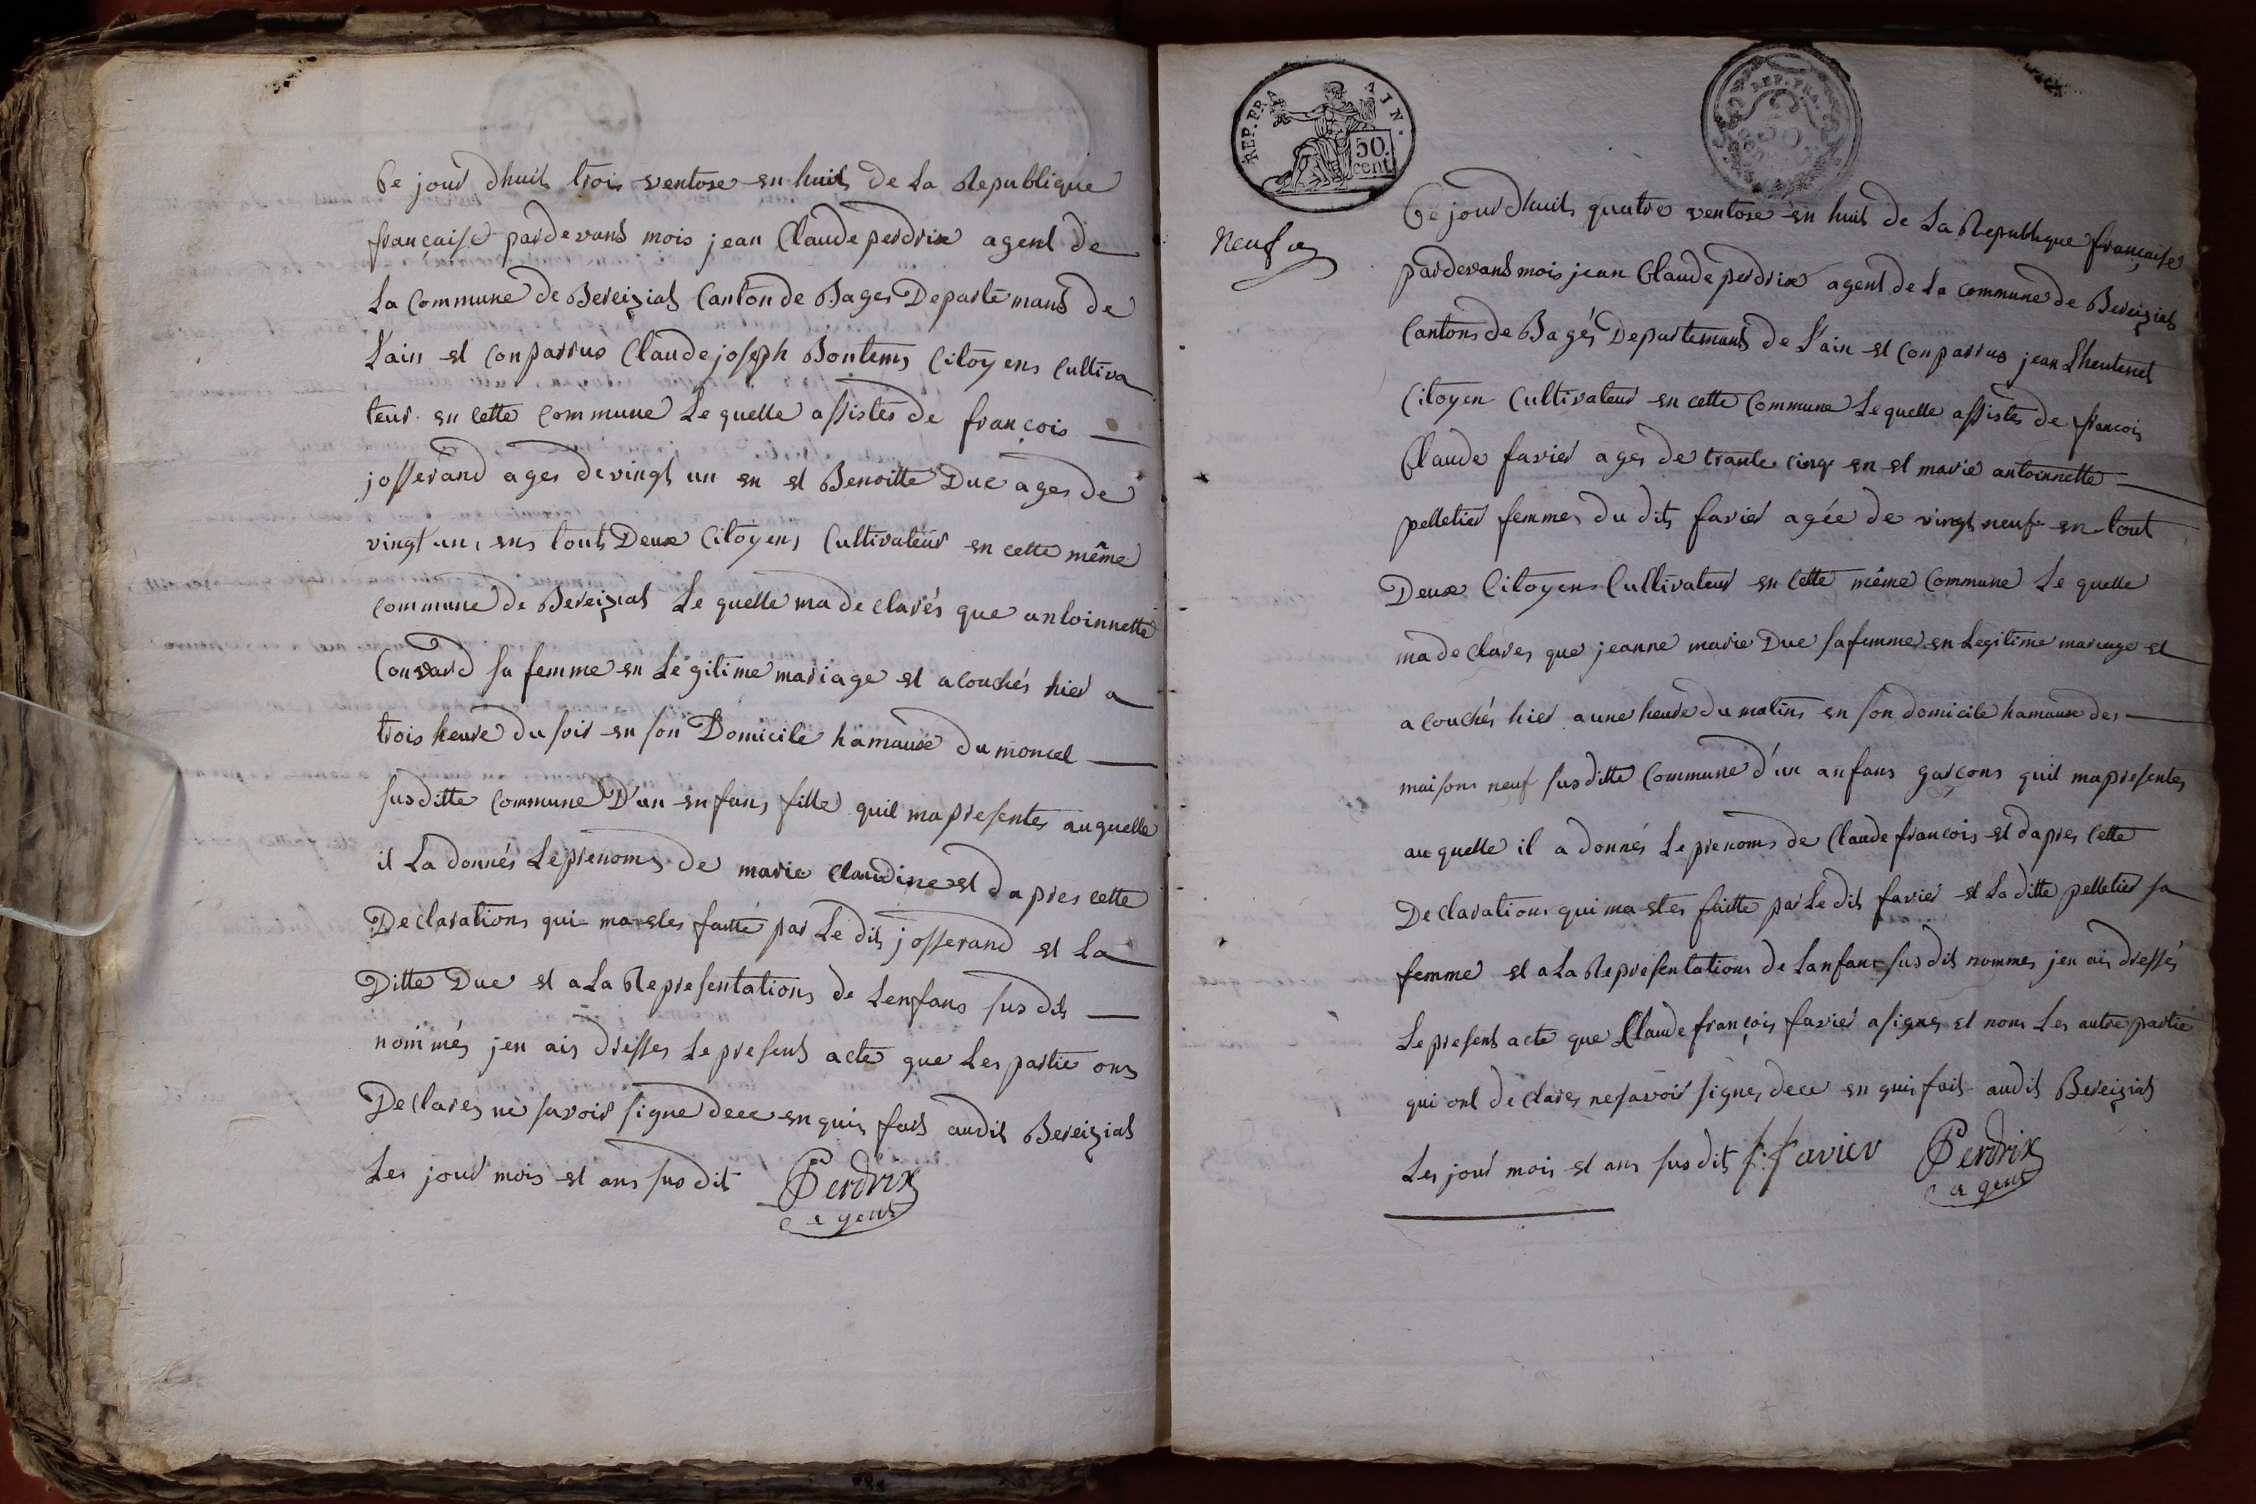 Ce jour dhuit trois ventose en huit de La Republique
française pardevand mois jean Claude perdrix agent de
La Commune de Bereiziat Canton de Bages Departemans de
L'ain est Conparrus Claude joseph Bontems Citoyens Cultiva
teur en cette Commune Le quelle assistes de françois
josserand ages de vingt un en et Benoitte Duc ages de
vingt un, ens touts Deux Citoyens Cultivateur en cette même
commune de Bereiziat Le quelle ma de clarés que antoinnette
Convard sa femme en Légitime mariage et acouchés hier a
trois heure du soir en son Domicile hamaux du moncel
sus ditte commune D'un enfans fille quil ma presentes auquelle
il La donnés Le prenoms de marie Claudine et da pres cette
De Clarations qui ma etes faitte par Le dit josserand et La
Ditte Duc et a La Representations de Lenfans sus dit
nommés jen ais dresses Le present acte que Les partie ons
De Clares ne savoir signe dece en quis fait audit Bereiziat
Les jour mois et ans sus dit Perdrix
agent
REP. FRA AIN.
50. cent.
REP. FRA.
50
neuf
Ce jour dhuit quatre ventose en huit de La Republique française
pardevand mois jean Claude perdrix agent de La commune de Bereiziat
Cantons de Bagés Departemant de L'ain et Conparrus jean Lheutenet
Citoyen Cultivateur en cette Commune Le quelle assistes de francois
Claude favier ages de trante cinq en et marie antoinnette
pelletier femmes du dit favier agée de vingt neuf en tout
Deux Citoyens Cultivateur en Cette même Commune Le quelle
ma de Clares que jeanne marie Duc sa femmes en Legitime mariage et
acouchés hier a une heure du matins en son domicile hamaux des
maisons neuf sus ditte Commune d'un anfans garçons quil ma presentes
au quelle il a donnés Le prenoms de Claude francois et dapres Cette
De Clarations qui ma etes faitte par Le dit favier et La ditte pelletier sa
femme et a La Representations de Lanfant sus dit nommes jen ais dressés
Le present acte que Claude françois favier a signes et nons Les autre partie
qui ont de Clares ne savoir signes dece en quis fait audit Bereiziat
Les jour mois et ans sus dit f. favier Perdrix
agent